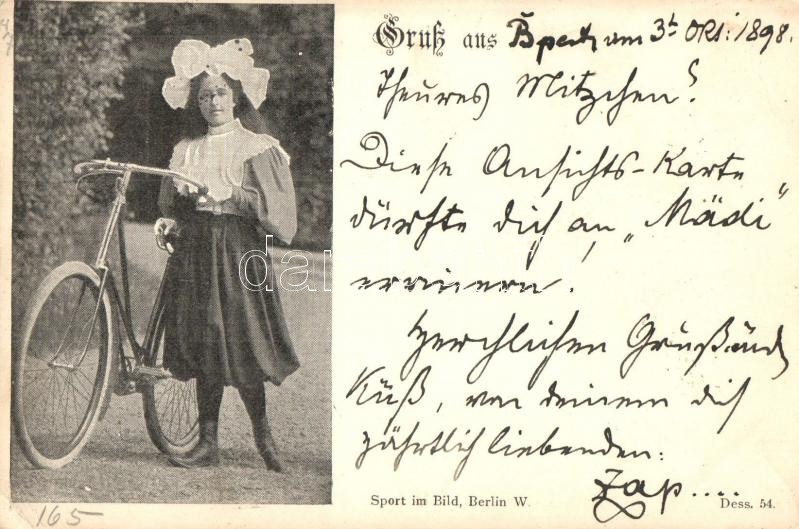 Gruß aus Bpest, am 3t Okt: 1898.
Theures Mitzchen!
Diese Ansichts-Karte
dürfte dich an „Mädi"
errinern!
Herzlichen Gruß und
Küß, von deinem dich
zährtlich liebenden:
Zap....
Sport im Bild, Berlin W.
Dess. 54.
165